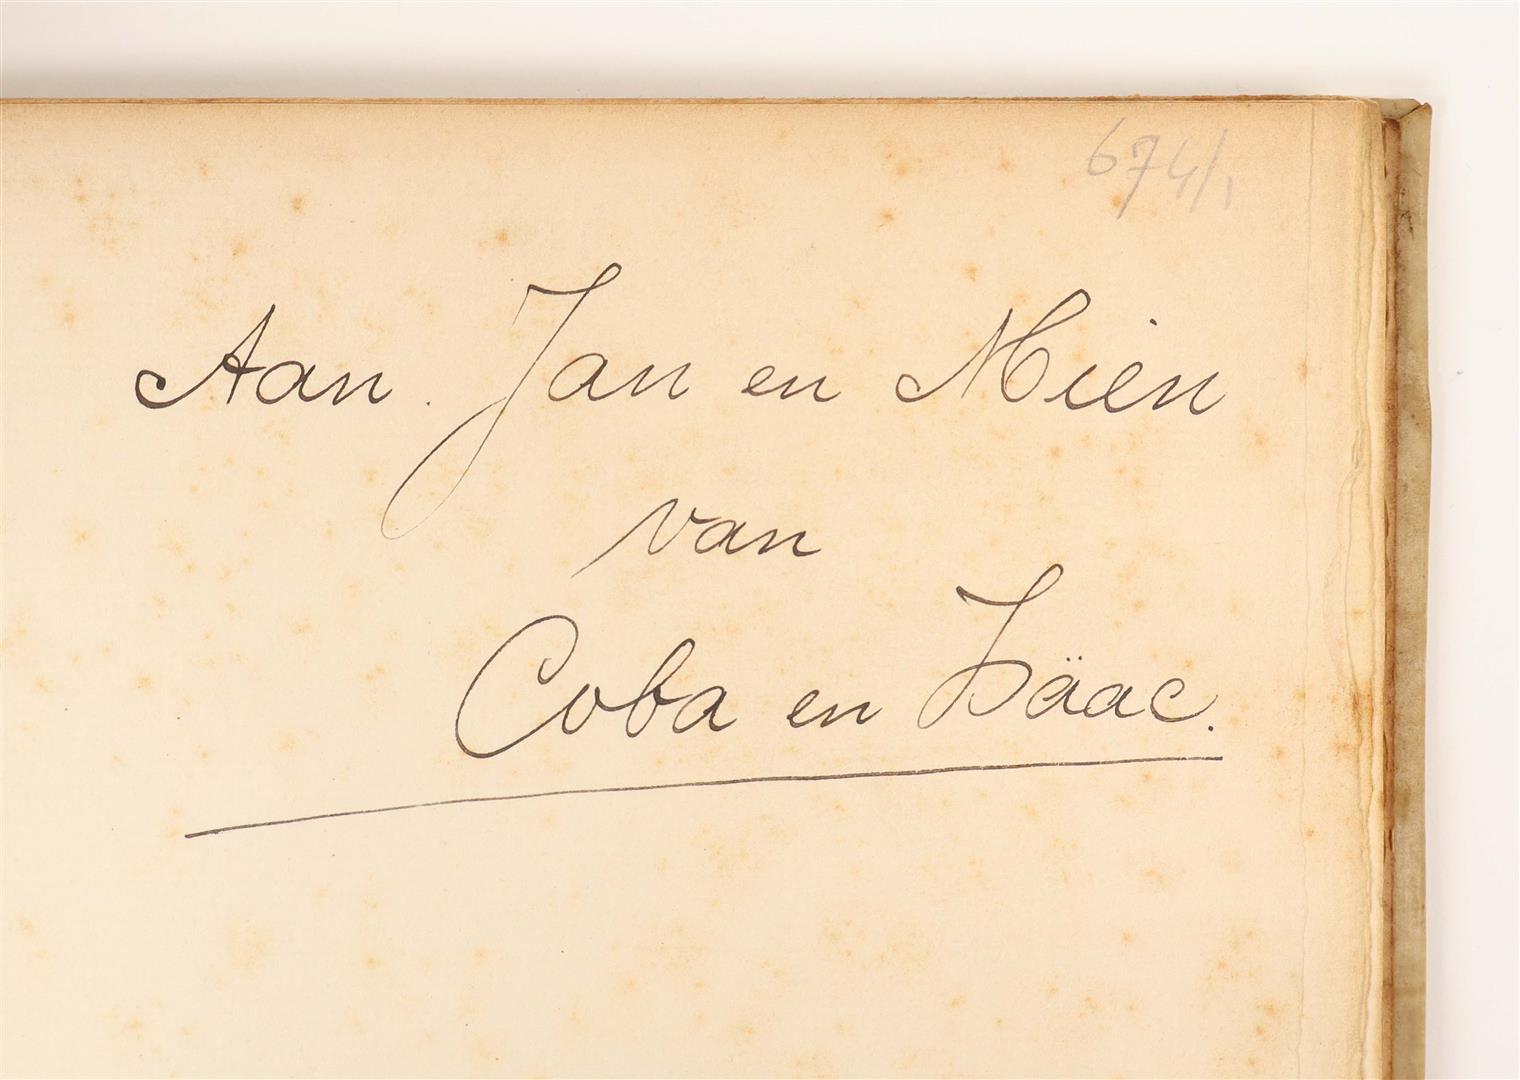 674/1
Aan. Jan en Mien
van
Coba en Isäac.